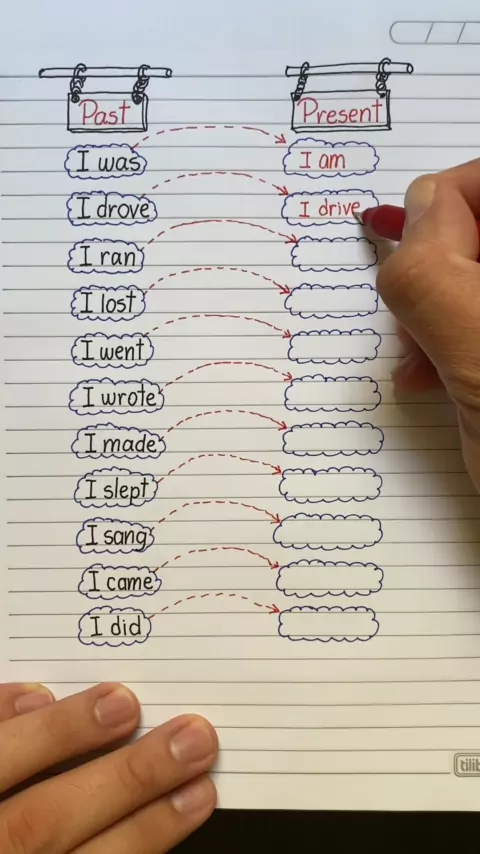 Past Present
I was I am
I drove I drive
I ran
I lost
I went
I wrote
I made
I slept
I sang
I came
I did